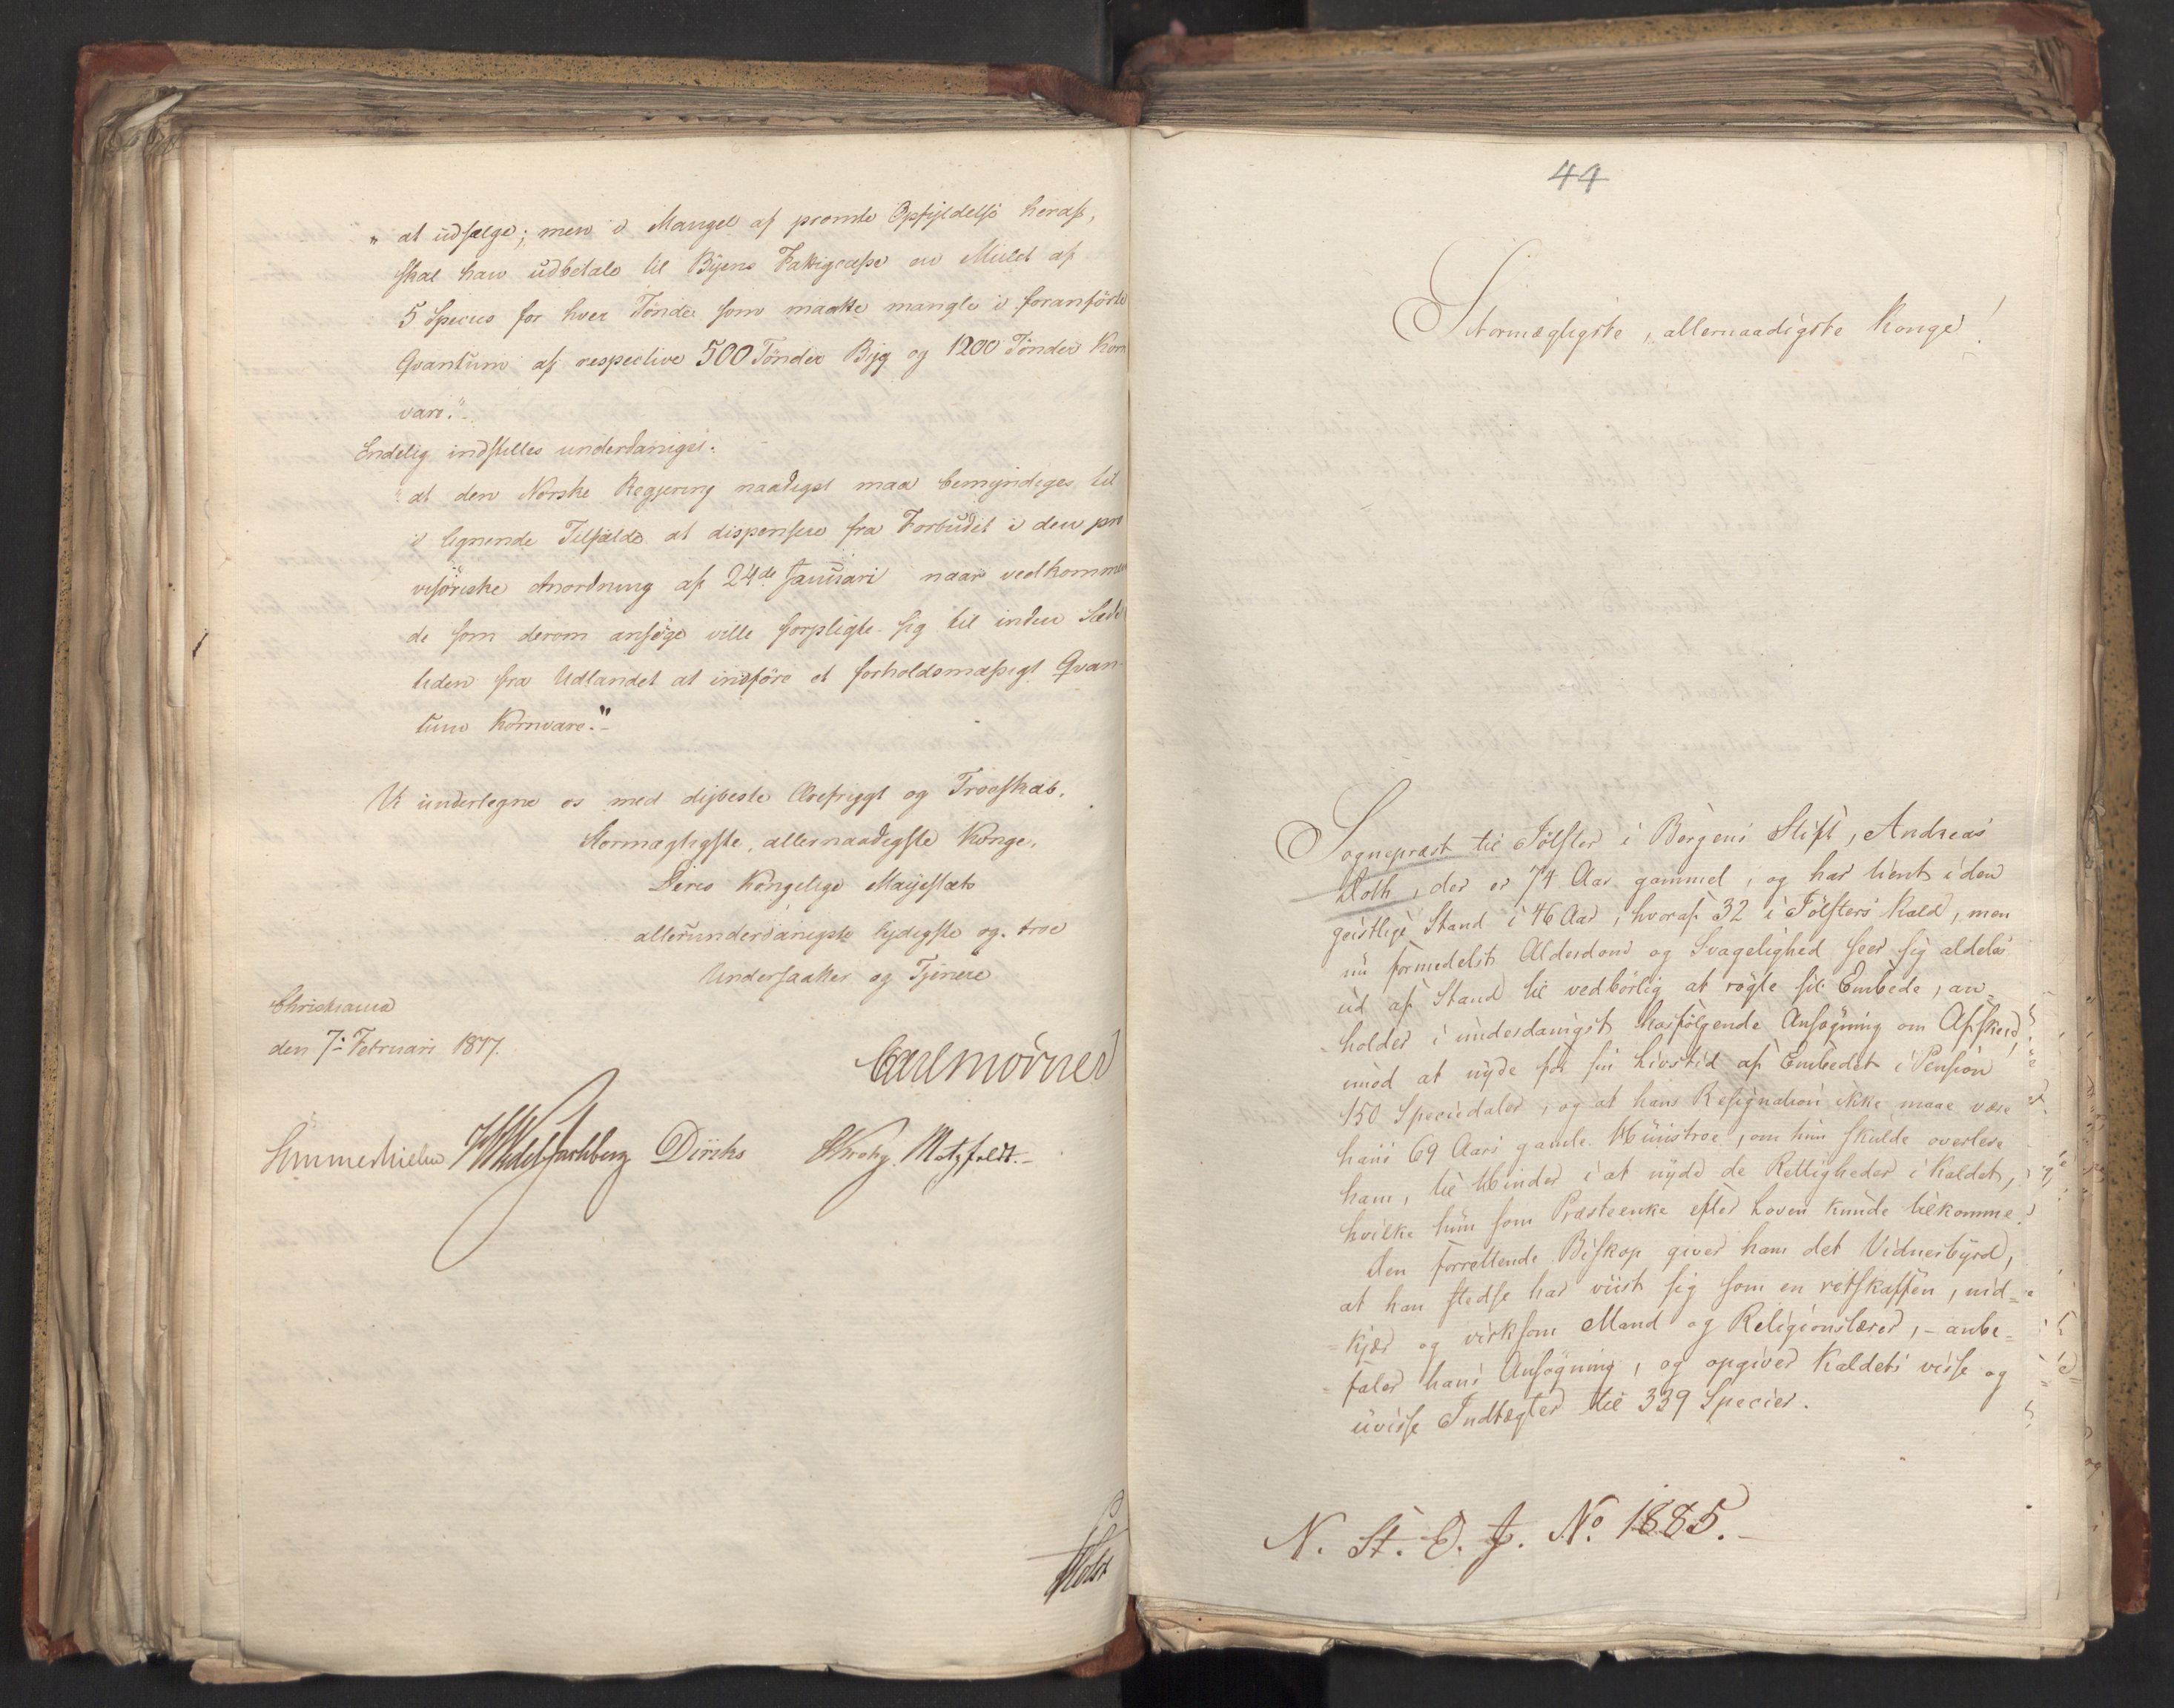 „ at udsælge; men i Mangel af promte Opfyldelse heraf,
skal han udbetale til Byens Fattigcasse en Mulct af
5 Specier for hver Tønde som maatte mangle i foranførte
Qvantum af respective 500 Tønder Byg og 1200 Tønder Korn
vare."
Endelig indstilles underdanigst:
"at den Norske Regjering naadigst maa bemyndiges til
i lignende Tilfælde at dispensere fra Forbudet i den pro
visoriske Anordning af 24de Januari naar vedkommen
de som derom ansøge ville forpligte sig til inden Sæde
tiden fra Udlandet at indføre et forholdsmæssigt Qvan-
tum Kornvare."-
Vi undertegne os med dybeste Ærefrygt og Troeskab.
Stormægtigste, allernaadigste Konge,
Deres Kongelige Mayestæts
allerunderdanigste lydigste og troe
Undersaatter og Tjenere
Christiania
den 7de Februari 1817.
Carl Mörner
Sommerhielm HWedelJarlsberg Diriks CKrohg. Motzfeldt.-
Holst
44
Stormægtigste, allernaadigste Konge!
Sognepræst til Jølster i Bergens Stift, Andreas
Dolk, der er 74 Aar gammel, og har tient i den
geistlige Stand i 46 Aar, hvoraf 32 i Jølsters Kald, men
nu formedelst Alderdom og Svagelighed seer sig aldeles
ud af Stand til vedbørlig at røgte sit Embede, an=
holder i underdanigst hosfølgende Ansøgning om Afskeed,
imod at nyde for sin Livstid af Embedet i Pension
150 Speciedaler, og at hans Resignation ikke maae være
hans 69 Aars gamle Hüustroe, om hun skulde overleve
ham, til Hinder i at nyde de Rettigheder i Kaldet,
hvilke hun som Præsteenke efter Loven kunde tilkomme.
Den forrettende Biskop giver ham det Vidnesbyrd,
at han stedse har viist sig som en retskaffen, nid=
=kjær og virksom Mand og Religionslærer, - anbe=
=faler hans Ansøgning, og opgiver Kaldets visse og
uvisse Indtægter til 339 Specier.
N. St. E. J. No 1885.-